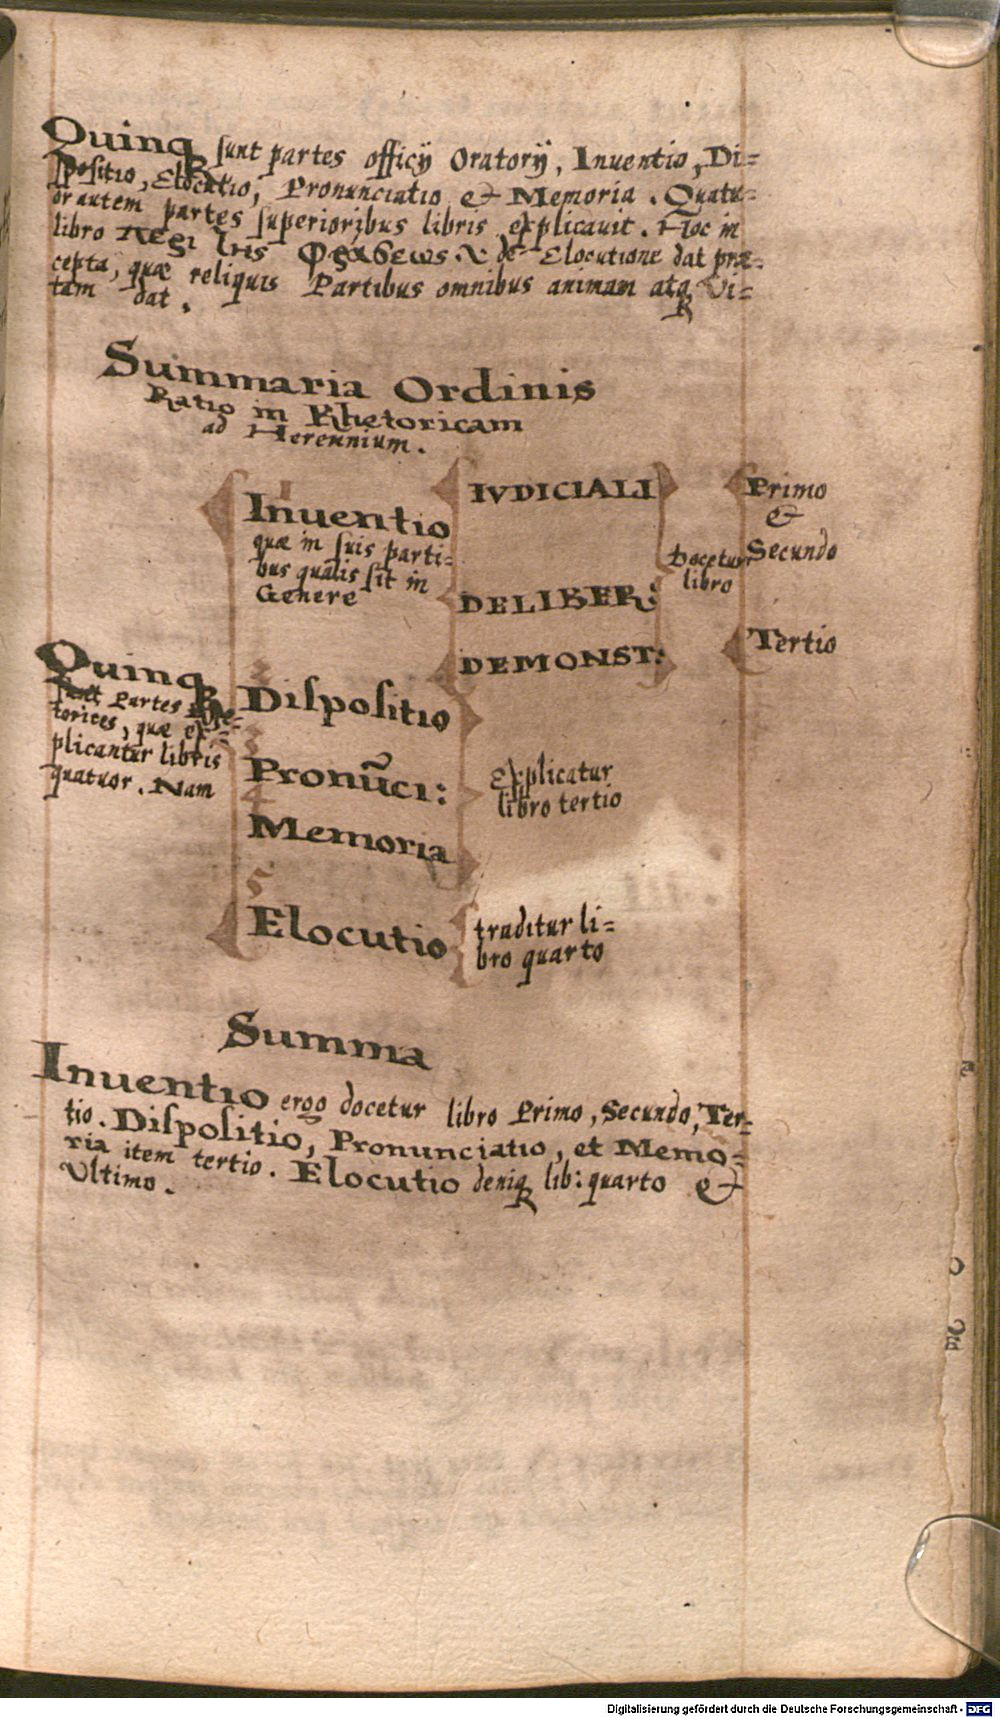 Quinq sunt partes officÿ Oratorÿ, Inuentio, Di=
spositio, Elocutio, Pronunciatio & Memoria. Quatu=
or autem partes superioribus libris explicauit. Hoc in
libro περι της Φράσεως & de Elocutione dat præ=
cepta, quæ reliquis Partibus omnibus animam atq Vi=
tam dat.
Summaria Ordinis
Ratio in Rhetoricam
ad Herennium.
Quinq
sunt Partes Rhe=
torices, quæ ex=
plicantur libris
quatuor. Nam
1
Inuentio
quæ in suis parti=
bus qualis sit in
Genere
IVDICIALI
DELIBER:
DEMONST:
Docetur
libro
Primo
&
Secundo
Tertio
2
Dispositio
3
Pronũci:
4
Memoria
Explicatur
libro tertio
5
Elocutio
traditur li=
bro quarto
Summa
Inuentio ergo docetur libro Primo, Secundo, Ter=
tio. Dispositio, Pronunciatio, et Memo=
ria item tertio. Elocutio deniq lib: quarto &
Vltimo.
Digitalisierung gefördert durch die Deutsche Forschungsgemeinschaft - DFG